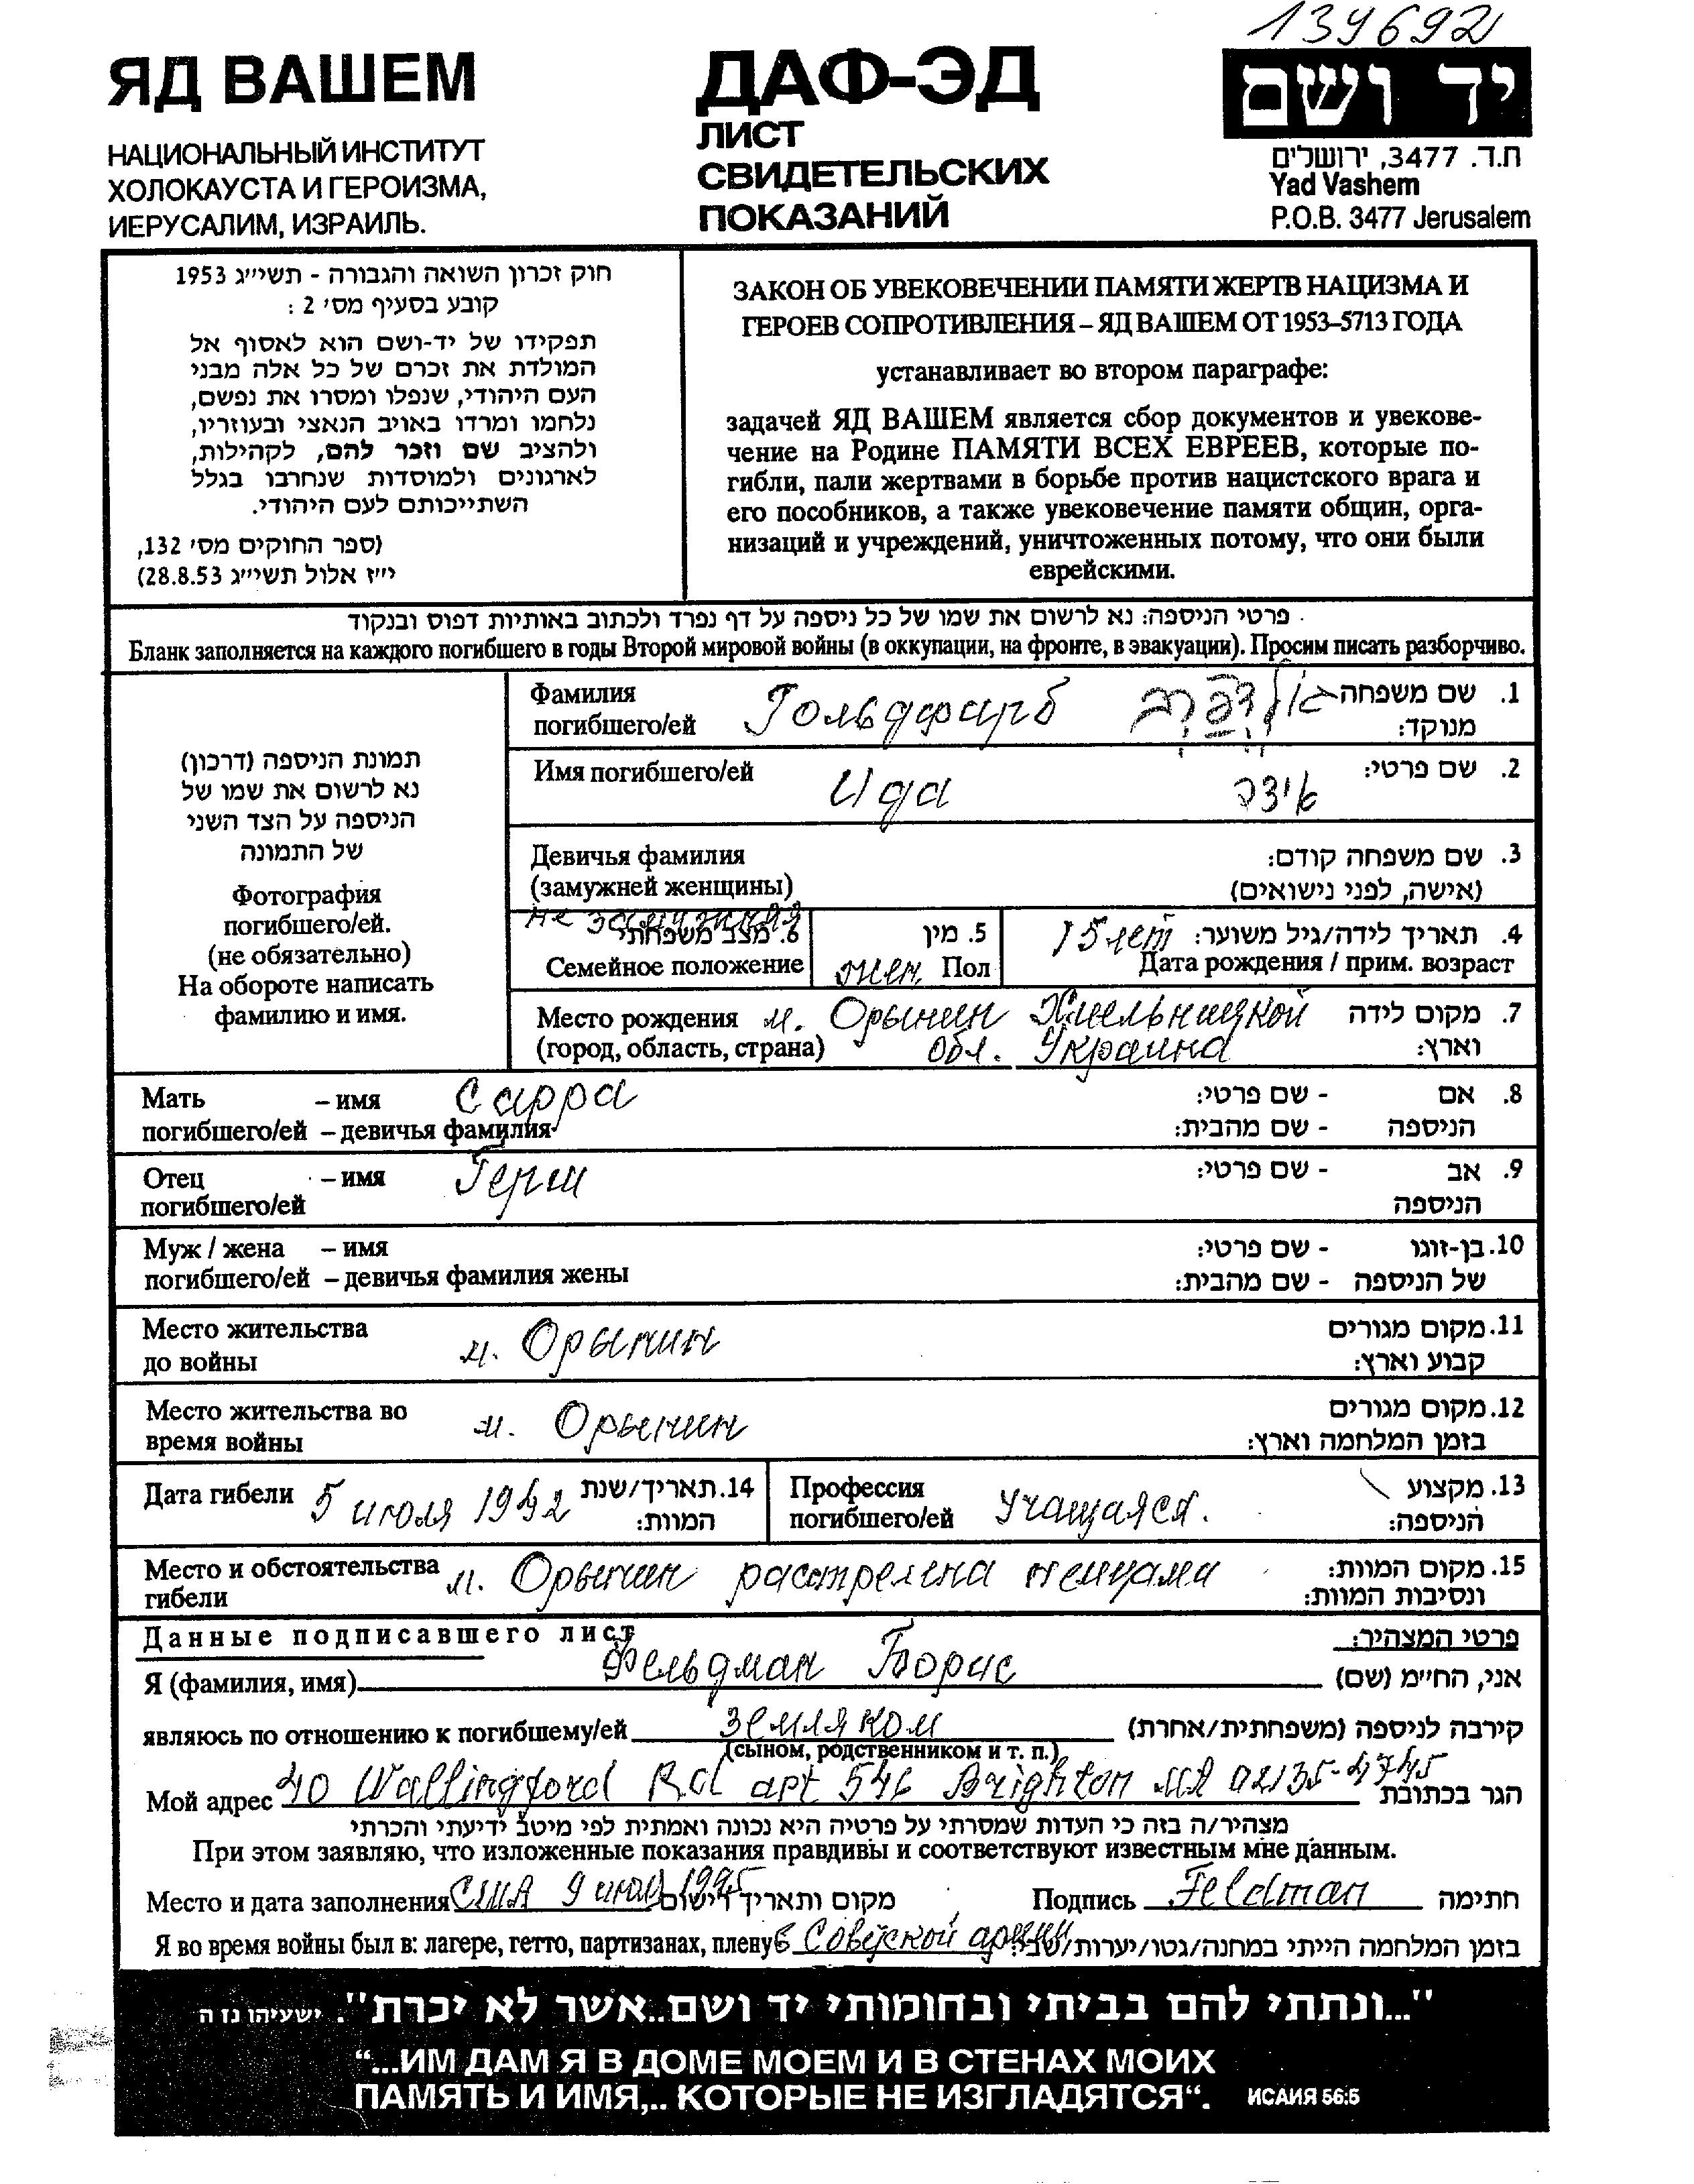 139692
ЯД ВАШЕМ
НАЦИОНАЛЬНЫЙ ИНСТИТУТ
ХОЛОКАУСТА И ГЕРОИЗМА,
ИЕРУСАЛИМ, ИЗРАИЛЬ.
ДАФ-ЭД
ЛИСТ
СВИДЕТЕЛЬСКИХ
ПОКАЗАНИЙ
יד ושם
ת.ד. 3477, ירושלים
Yad Vashem
P.O.B. 3477 Jerusalem
חוק זכרון השואה והגבורה - תשי״ג 1953
קובע בסעיף מס׳ 2 :
תפקידו של יד-ושם הוא לאסוף אל
המולדת את זכרם של כל אלה מבני
העם היהודי, שנפלו ומסרו את נפשם,
נלחמו ומרדו באויב הנאצי ובעוזריו,
ולהציב שם וזכר להם, לקהילות,
לארגונים ולמוסדות שנחרבו בגלל
השתייכותם לעם היהודי.
(ספר החוקים מס׳ 132,
י״ז אלול תשי״ג 28.8.53)
ЗАКОН ОБ УВЕКОВЕЧЕНИИ ПАМЯТИ ЖЕРТВ НАЦИЗМА И
ГЕРОЕВ СОПРОТИВЛЕНИЯ – ЯД ВАШЕМ ОТ 1953–5713 ГОДА
устанавливает во втором параграфе:
задачей ЯД ВАШЕМ является сбор документов и увекове-
чение на Родине ПАМЯТИ ВСЕХ ЕВРЕЕВ, которые по-
гибли, пали жертвами в борьбе против нацистского врага и
его пособников, а также увековечение памяти общин, орга-
низаций и учреждений, уничтоженных потому, что они были
еврейскими.
פרטי הניספה: נא לרשום את שמו של כל ניספה על דף נפרד ולכתוב באותיות דפוס ובנקוד
Бланк заполняется на каждого погибшего в годы Второй мировой войны (в оккупации, на фронте, в эвакуации). Просим писать разборчиво.
תמונת הניספה (דרכון)
נא לרשום את שמו של
הניספה על הצד השני
של התמונה
Фотография
погибшего/ей.
(не обязательно)
На обороте написать
фамилию и имя.
Фамилия погибшего/ей Гольдфарб גולדפרב 1. שם משפחה מנוקד:
Имя погибшего/ей Ида אידה 2. שם פרטי:
Девичья фамилия 3. שם משפחה קודם:
(замужней женщины) (אישה, לפני נישואים)
не замужняя
6. מצב משפחתי 5. מין 15 лет 4. תאריך לידה/גיל משוער:
Семейное положение жен. Пол Дата рождения / прим. возраст
Место рождения м. Орынин Хмельницкой 7. מקום לידה
(город, область, страна) обл. Украина וארץ:
Мать – имя Сарра 8. אם - שם פרטי:
погибшего/ей – девичья фамилия הניספה - שם מהבית:
Отец – имя Герш 9. אב - שם פרטי:
погибшего/ей הניספה
Муж / жена – имя 10. בן-זוגו - שם פרטי:
погибшего/ей – девичья фамилия жены של הניספה - שם מהבית:
Место жительства м. Орынин 11. מקום מגורים
до войны קבוע וארץ:
Место жительства во м. Орынин 12. מקום מגורים
время войны בזמן המלחמה וארץ:
Дата гибели 5 июля 1942 14. תאריך/שנת המוות:
Профессия погибшего/ей Учащаяся. 13. מקצוע הניספה:
Место и обстоятельства м. Орынин расстрелена немцами 15. מקום המוות:
гибели ונסיבות המוות:
Данные подписавшего лист פרטי המצהיר:
Я (фамилия, имя) Фельдман Борис אני, הח״מ (שם)
являюсь по отношению к погибшему/ей земляком קירבה לניספה (משפחתית/אחרת)
(сыном, родственником и т. п.)
Мой адрес 40 Wallingford Rd apt 546 Brighton MA 02135-4745 הגר בכתובת
מצהיר/ה בזה כי העדות שמסרתי על פרטיה היא נכונה ואמתית לפי מיטב ידיעתי והכרתי
При этом заявляю, что изложенные показания правдивы и соответствуют известным мне данным.
Место и дата заполнения США 9 июля 1995 מקום ותאריך רישום Подпись Feldman חתימה
Я во время войны был в: лагере, гетто, партизанах, плену в Совецкой армии בזמן המלחמה הייתי במחנה/גטו/יערות/שבי:
"...ונתתי להם בביתי ובחומותי יד ושם..אשר לא יכרת". ישעיהו נז ה
“...ИМ ДАМ Я В ДОМЕ МОЕМ И В СТЕНАХ МОИХ
ПАМЯТЬ И ИМЯ,.. КОТОРЫЕ НЕ ИЗГЛАДЯТСЯ“. ИСАИЯ 56:5